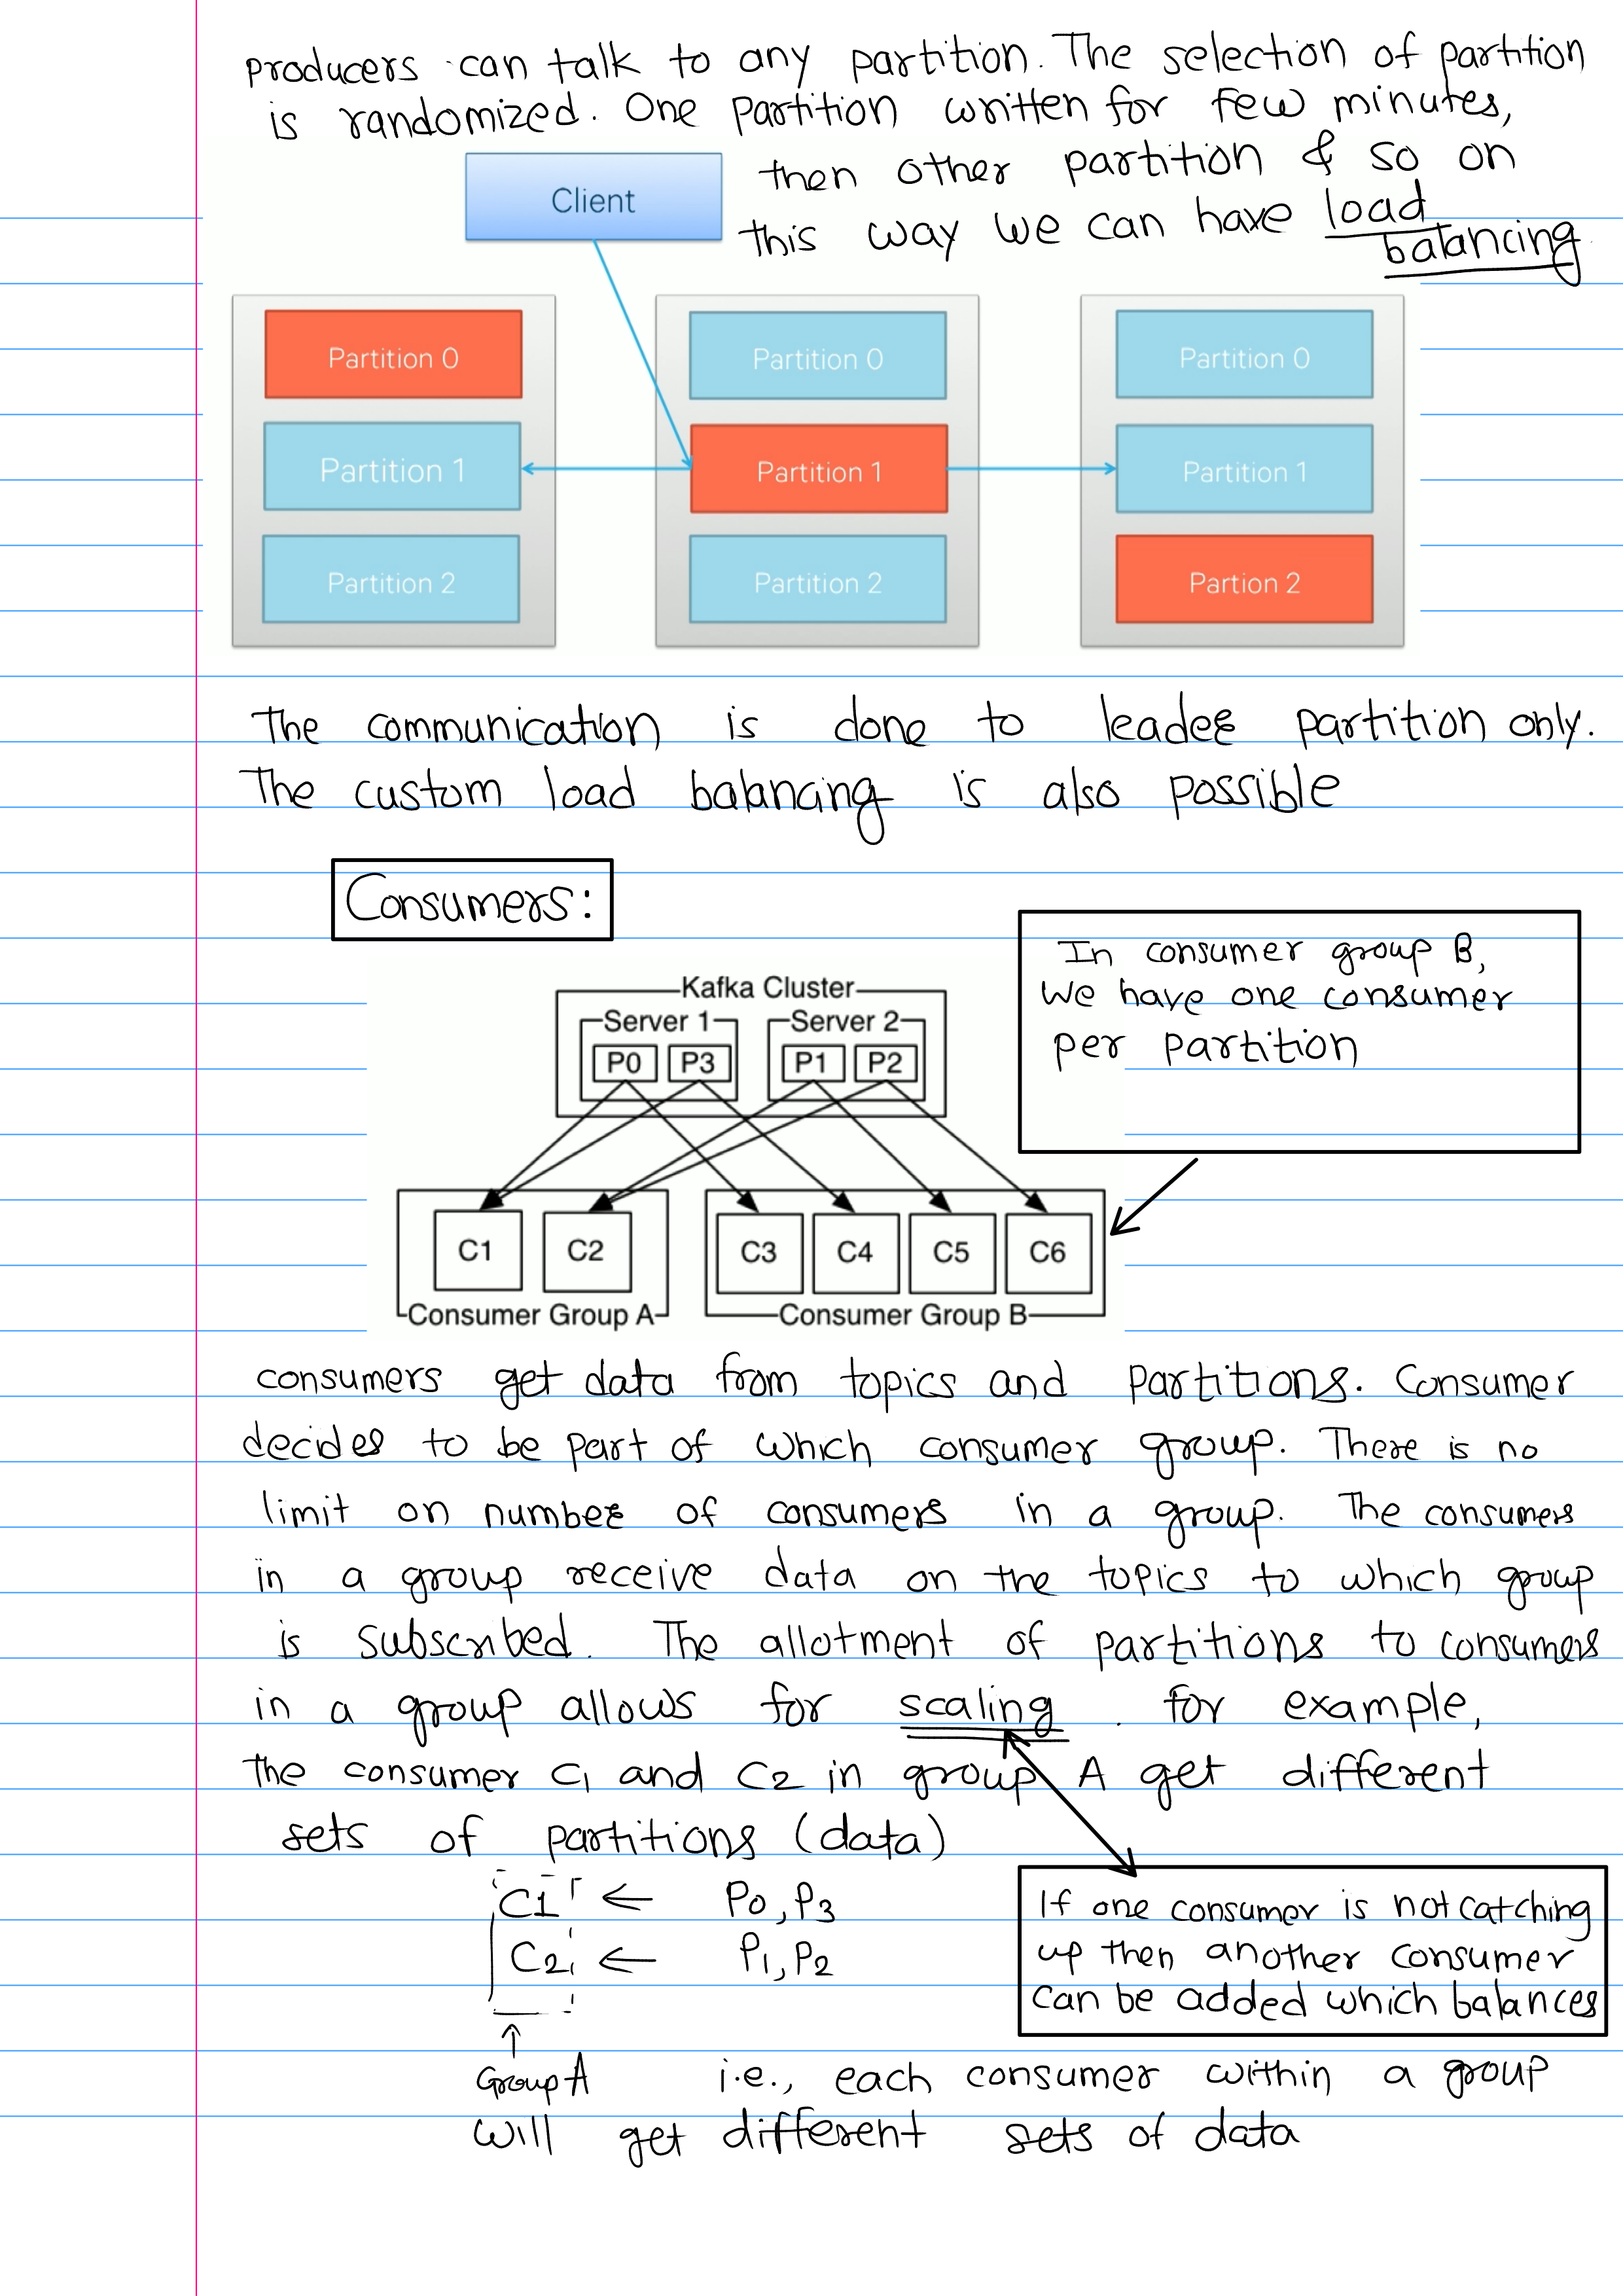 producers can talk to any partition. The selection of partition
is randomized. One partition written for few minutes,
then other partition & so on
this way we can have load
balancing
Client
Partition 0
Partition 0
Partition 0
Partition 1
Partition 1
Partition 1
Partition 2
Partition 2
Partion 2
The communication is done to leader partition only.
The custom load balancing is also possible
Consumers:
In consumer group B,
we have one consumer
per partition
Kafka Cluster
Server 1 Server 2
P0 P3 P1 P2
C1 C2 C3 C4 C5 C6
Consumer Group A Consumer Group B
consumers get data from topics and partitions. Consumer
decides to be part of which consumer group. There is no
limit on number of consumers in a group. The consumers
in a group receive data on the topics to which group
is subscribed. The allotment of partitions to consumers
in a group allows for scaling. for example,
the consumer C1 and C2 in group A get different
sets of partitions (data)
C1 ← P0, P3
C2 ← P1, P2
↑
Group A
If one consumer is not catching
up then another consumer
can be added which balances
i.e., each consumer within a group
will get different sets of data